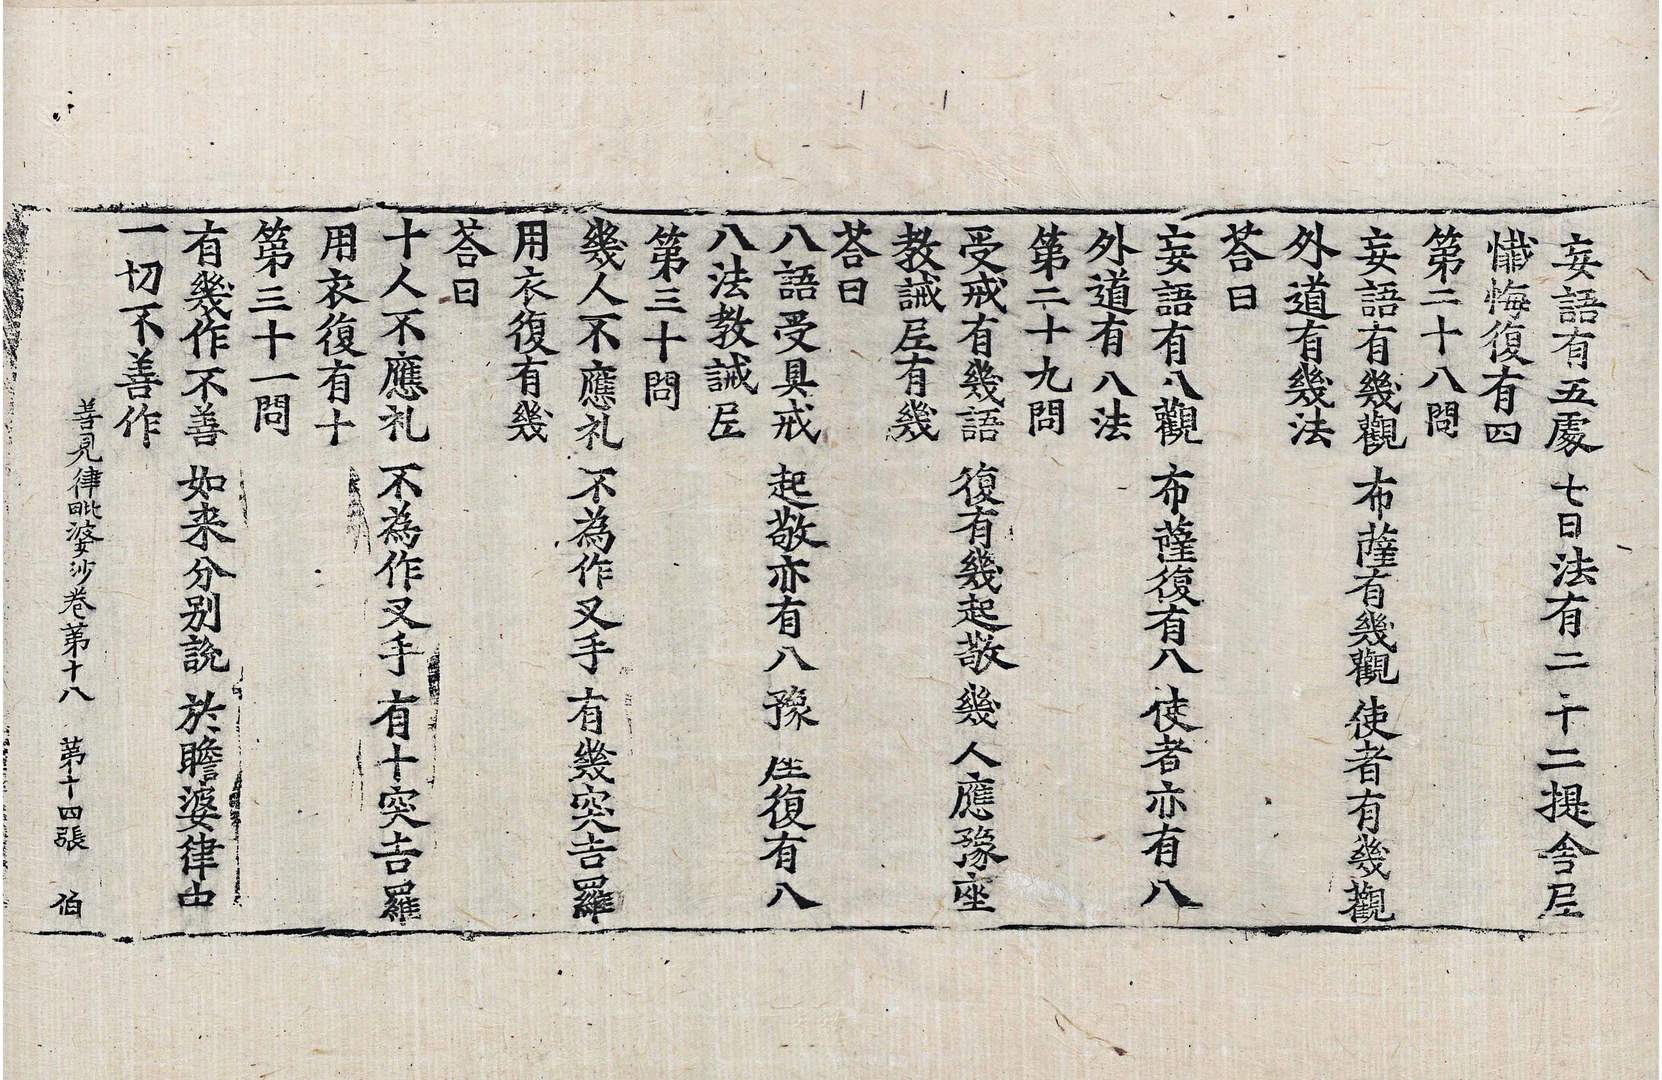 妄語有五處 七日法有二 二十二提舍𡰱
懺悔復有四
第二十八問
妄語有幾觀 布薩有幾觀 使者有幾觀
外道有幾法
荅曰
妄語有八觀 布薩復有八 使者亦有八
外道有八法
第二十九問
受戒有幾語 復有幾起敬 幾人應豫座
教誡𡰱有幾
荅曰
八語受具戒 起敬亦有八 豫座復有八
八法教誡𡰱
第三十問
幾人不應礼 不為作叉手 有幾突吉羅
用衣復有幾
荅曰
十人不應礼 不為作叉手 有十突吉羅
用衣復有十
第三十一問
有幾作不善 如来分别說 於瞻婆律中
一切不善作
善見律毗婆沙卷苐十八 苐十四張 伯